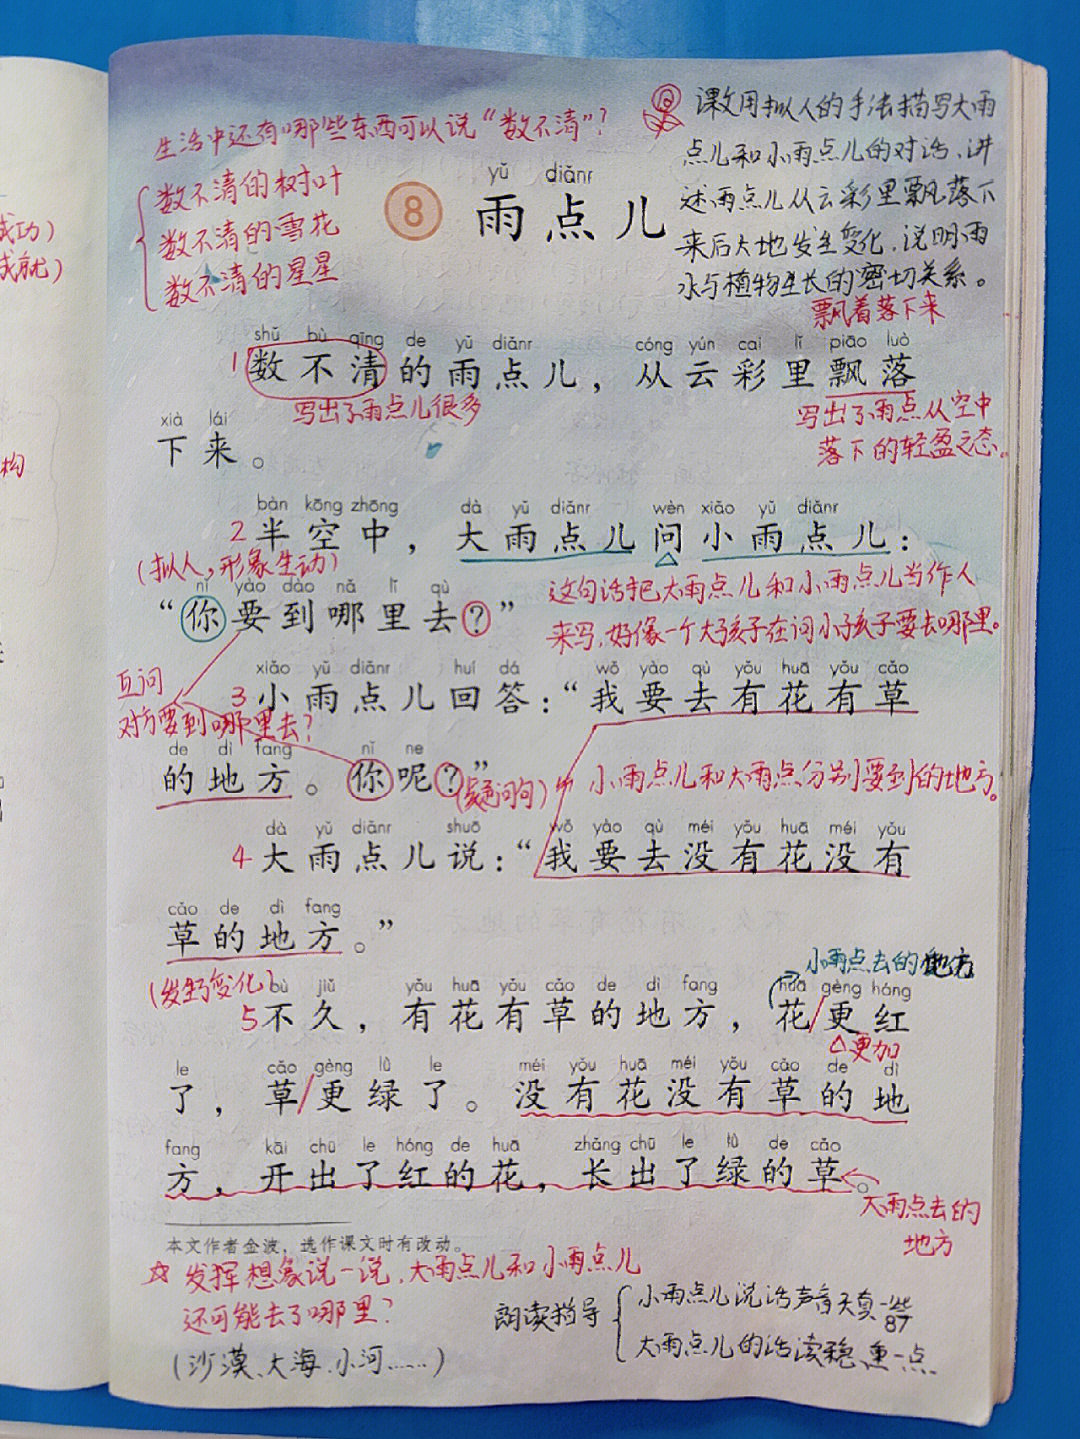 生活中还有哪些东西可以说“数不清”？
数不清的树叶
数不清的雪花
数不清的星星
课文用拟人的手法描写大雨
点儿和小雨点儿的对话，讲
述雨点儿从云彩里飘落下
来后大地发生变化，说明雨
水与植物生长的密切关系。
yǔ diǎnr
8 雨点儿
飘着落下来
shǔ bù qīng de yǔ diǎnr cóng yún cai lǐ piāo luò
1 数不清的雨点儿，从云彩里飘落
写出了雨点儿很多
写出了雨点从空中
落下的轻盈之态。
xià lái
下来。
bàn kōng zhōng dà yǔ diǎnr wèn xiǎo yǔ diǎnr
2 半空中，大雨点儿问小雨点儿：
(拟人，形象生动)
nǐ yào dào nǎ lǐ qù
“你要到哪里去？”
这句话把大雨点儿和小雨点儿当作人
来写，好像一个大孩子在问小孩子要去哪里。
xiǎo yǔ diǎnr huí dá wǒ yào qù yǒu huā yǒu cǎo
3 小雨点儿回答：“我要去有花有草
互问
对方要到哪里去？
de dì fang nǐ ne
的地方。你呢？”
(疑问句)
小雨点儿和大雨点分别要到的地方。
dà yǔ diǎnr shuō wǒ yào qù méi yǒu huā méi yǒu
4 大雨点儿说：“我要去没有花没有
cǎo de dì fang
草的地方。”
小雨点去的地方
(发生了变化)
bù jiǔ yǒu huā yǒu cǎo de dì fang huā gèng hóng
5 不久，有花有草的地方，花/更红
更加
le cǎo gèng lǜ le méi yǒu huā méi yǒu cǎo de dì
了，草/更绿了。没有花没有草的地
fang kāi chū le hóng de huā zhǎng chū le lǜ de cǎo
方，开出了红的花，长出了绿的草。
大雨点去的
地方
本文作者金波，选作课文时有改动。
☆ 发挥想象说一说，大雨点儿和小雨点儿
还可能去了哪里？
(沙漠、大海、小河……)
朗读指导
小雨点儿说话声音天真一些
大雨点儿的话读稳、重一点
87
成功)
成就)
构